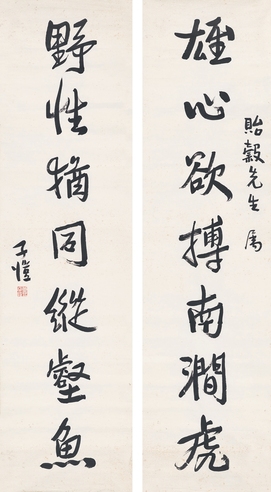 雄心欲搏南澗虎
貽穀先生屬
野性猶同縱壑魚
子愷